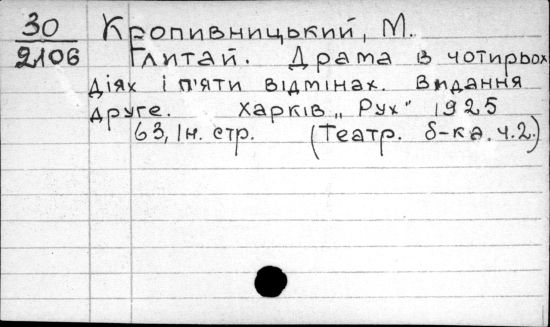 30 Кропивницький, М.
2106 Глитай. Драма в чотирьох
діях і п'яти відмінах. Видання
друге. Харків „Рух" 1925
63, Iн. стр. (Театр. б-ка. ч.2.)